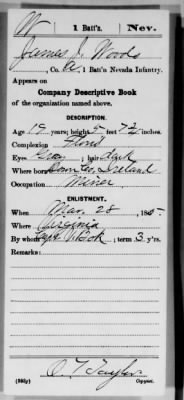 W 1 Batt'l. Nev.
James J. Woods
, Co. A, 1 Batt'l Nevada Infantry.
Appears on
Company Descriptive Book
of the organization named above.
DESCRIPTION.
Age 19 years; height 5 feet 7½ inches.
Complexion Florid
Eyes Gray ; hair Dark
Where born Down Co, Ireland
Occupation Miner
ENLISTMENT.
When Mar. 28, 1865.
Where Virginia
By whom Capt ; term 3 y'rs.
Remarks:
O. T. Taylor
Copyist.